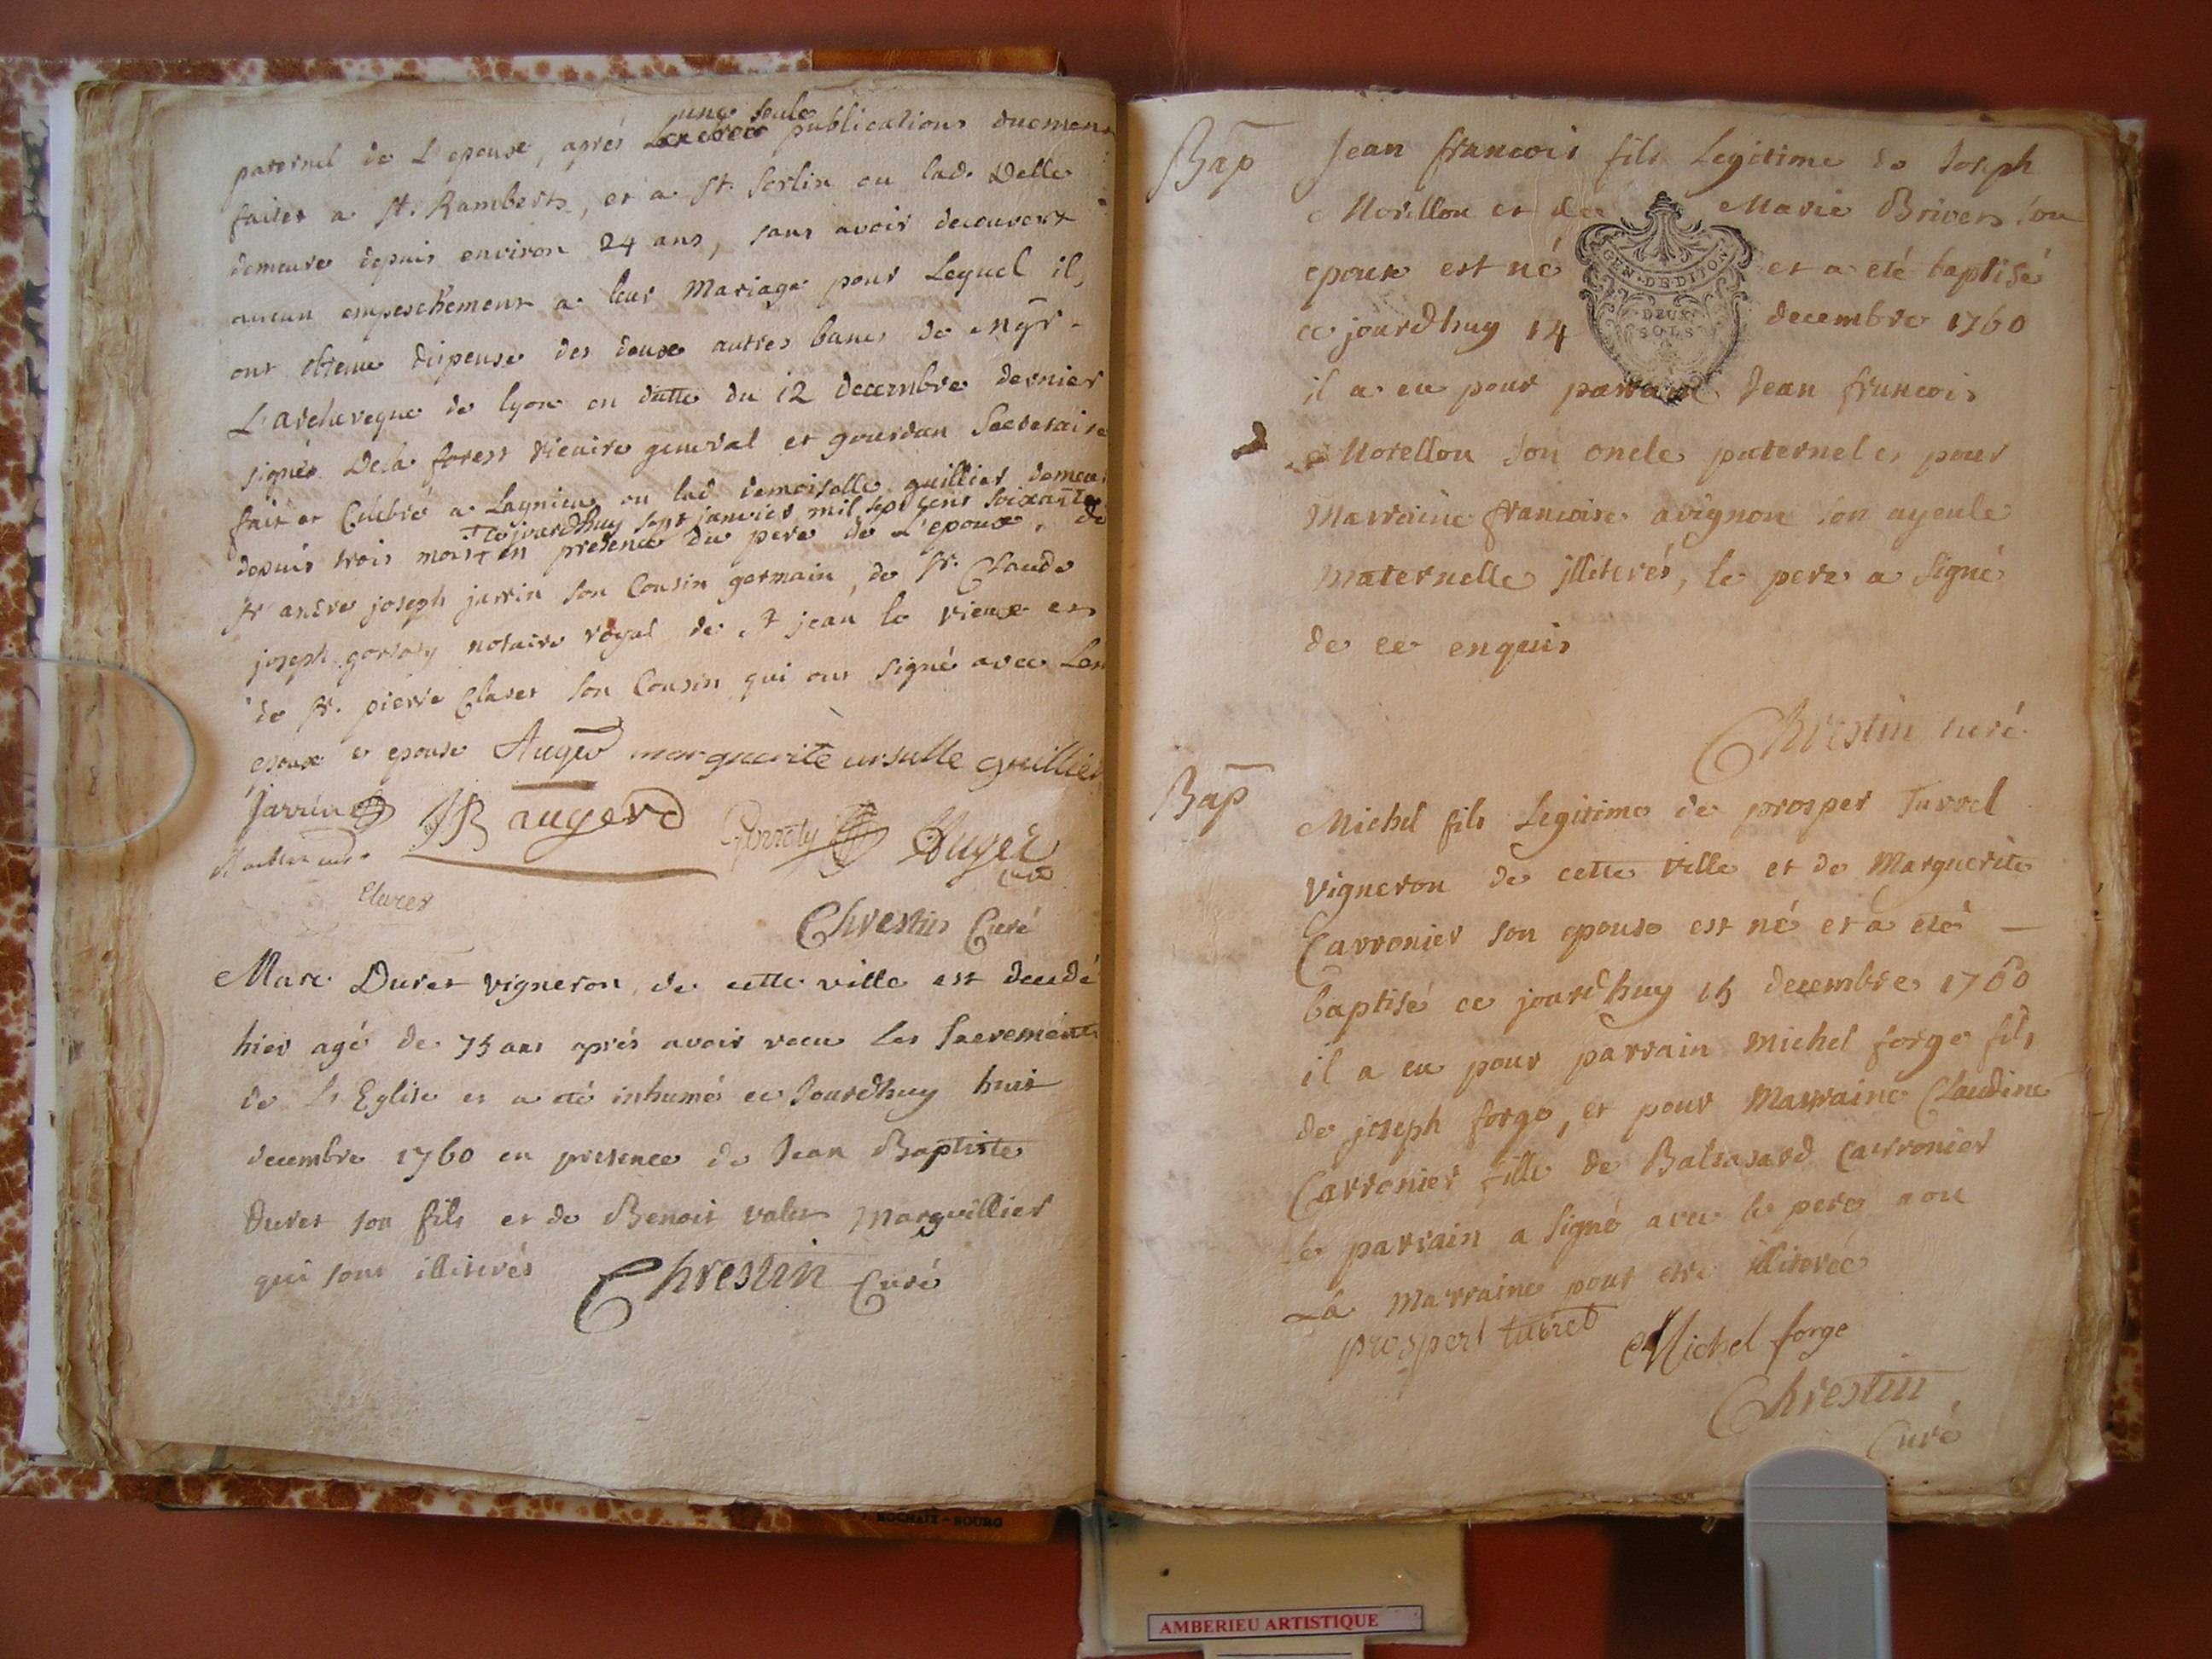 une seule
paternel de L'epouse, aprés publications duemens
faites a St. Rambert, et a St. Sorlin ou lad. Delle
demeure depuis environ 24 ans, sans avoir decouvert
aucun empeschement a leur Mariage pour Lequel ils
ont obtenu dispense des deux autres bans de Mgr.
L'archeveque de lyon en datte du 12 decembre dernier
signé Dela forest vicaire general et gourdan Secretaire
fait et Celebré a Lagnieu ou lad demoiselle guillier demeure
+ cejourdhuy sept janvier mil sept cens soixante
depuis trois mois + en presence du pere de L'epoux, de
Sr andré joseph jarrin son Cousin germain, de Sr. Claude
joseph notaire royal de St jean le vieux et
de Sr. pierre Claret son Cousin qui ont signé avec Les
epoux et epouse Auger marguerite ursulle guillier
Jarrin JB augerd Auger
Claret
Chrestin Curé
Marc Duret vigneron de cette ville est decedé
hier agé de 75 ans aprés avoir recu les Sacrements
de L'Eglise et a eté inhumé ce Jourdhuy huit
decembre 1760 en presence de Jean Baptiste
Duret son fils et de Benoit valet Marguillier
qui sont illiterés Chrestin Curé
Bap Jean francois fils Legitime de Joseph
Morellon et de Marie Brivet son
epouse est né et a eté baptisé
GEN. DE. DIJON
DEUX
SOLS
ce jourdhuy 14 decembre 1760
il a eu pour parrain Jean francois
Morellon son oncle paternel et pour
Marraine francoise avignon son ayeule
Maternelle jlliterés, le pere a signé
de ce enquis
Chrestin curé
Bap Michel fils Legitime de prosper Turrel
vigneron de cette ville et de Marguerite
Carronier son epouse est né et a eté
baptisé ce jourdhuy 15 decembre 1760
il a eu pour parrain Michel forge fils
de joseph forge, et pour Marraine Claudine
Carronier fille de Baltasard Carronier
le parrain a signé avec le pere non
La Marraine pour etre illiterée
prosperl turrel Michel forge
Chrestin
Curé
ROCHAIX - BOURG
AMBERIEU ARTISTIQUE